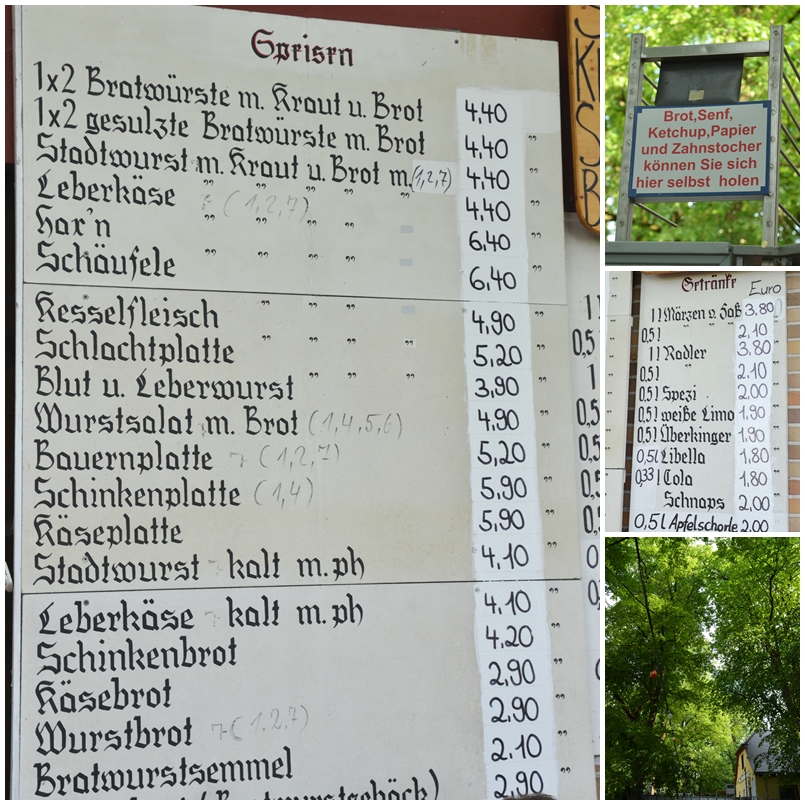 Speisen
1x2 Bratwürste m. Kraut u. Brot 4,40
1x2 gesulzte Bratwürste m. Brot 4,40 "
Stadtwurst m. Kraut u. Brot m. (1,2,7) 4,40 "
Leberkäse " " " " " (1,2,7) 4,40 "
Hax'n " " " " 6,40 "
Schäufele " " " " 6,40 "
Kesselfleisch " " " " 4,90 "
Schlachtplatte " " " " 5,20 "
Blut u. Leberwurst " " " 3,90 "
Wurstsalat m. Brot (1,4,5,6) 4,90 "
Bauernplatte (1,2,7) 5,20 "
Schinkenplatte (1,4) 5,90 "
Käseplatte 5,90 "
Stadtwurst kalt m. ph 4,10 "
Leberkäse kalt m. ph 4,10 "
Schinkenbrot 4,20 "
Käsebrot 2,90 "
Wurstbrot (1,2,7) 2,90 "
Bratwurstsemmel 2,10 "
(Bratwurstgehäck) 2,90 "
Brot,Senf,
Ketchup,Papier
und Zahnstocher
können Sie sich
hier selbst holen
Getränke Euro
1 l Märzen v. Faß 3,80
0,5 l " " " 2,10 "
1 l Radler 3,80 "
0,5 l " 2,10 "
0,5 l Spezi 2,00 "
0,5 l weiße Limo 1,90 "
0,5 l Überkinger 1,90 "
0,5 l Libella 1,80 "
0,33 l Cola 1,80 "
Schnaps 2,00 "
0,5 l Apfelschorle 2,00 "